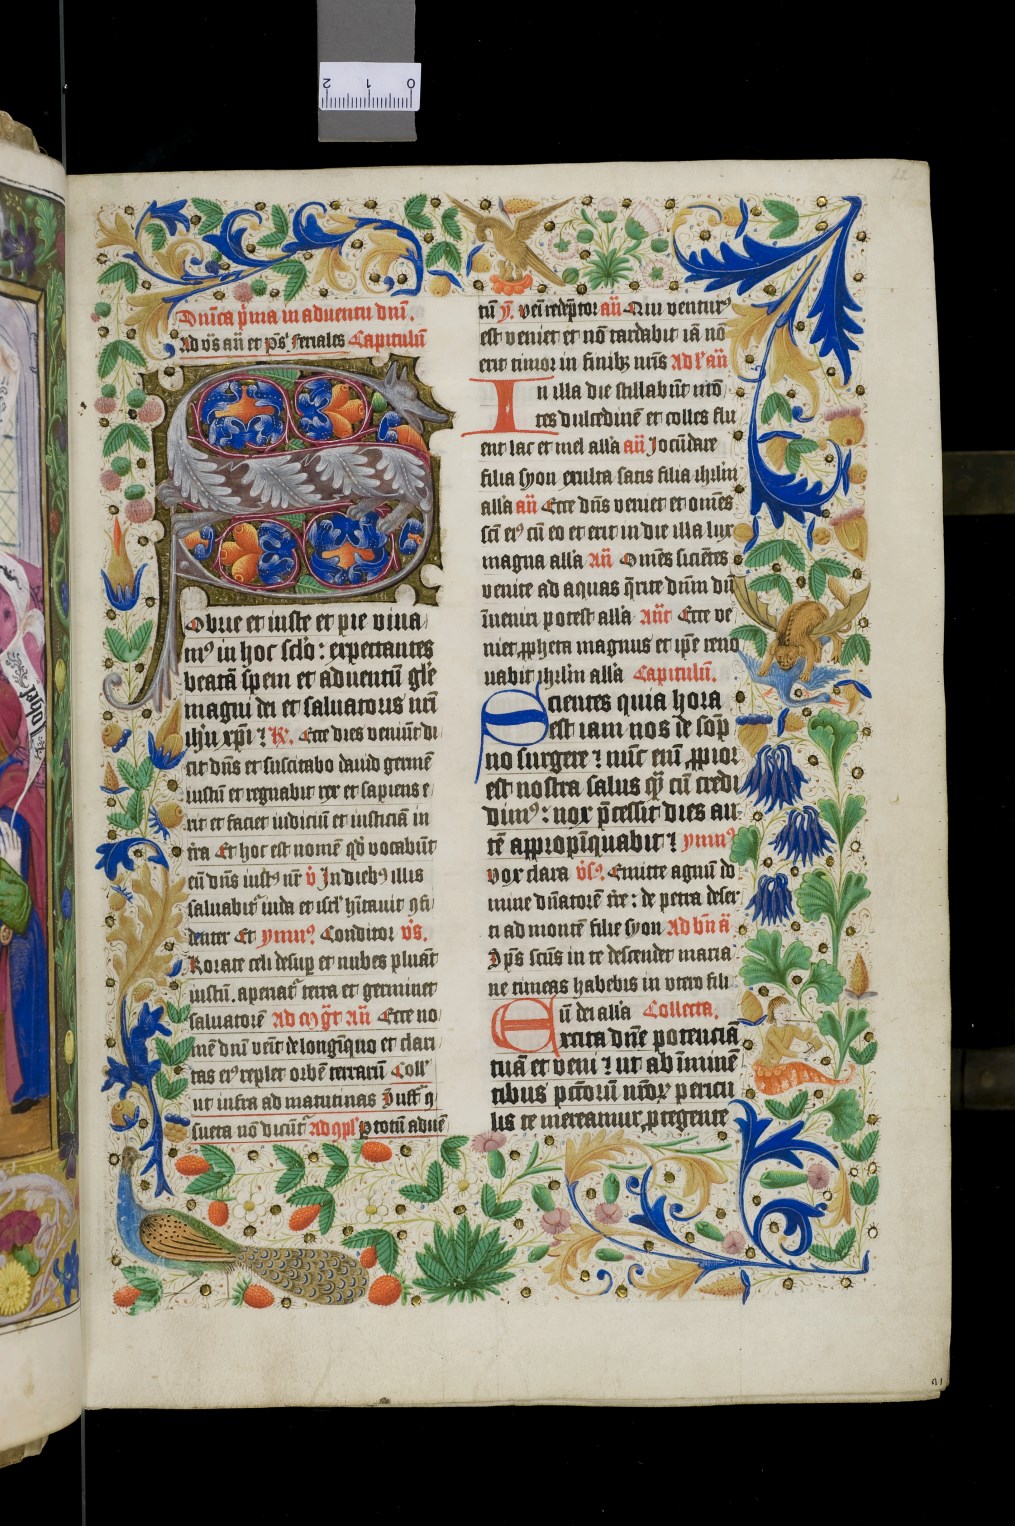 Dnica prima in adventu dni.
Ad vs an et ps feriales Capitulu
Sobrie et iuste et pie viua
mꝰ in hoc sclo: expectantes
beatā spem et aduentū gle
magni dei et saluatoris nri
ihu xpi ⁊ R. Ecce dies veniūt di
cit dns et suscitabo dauid germē
iustū et regnabit rex et sapiens e
rit et faciet iudiciū et iusticiā in
tra Et hoc est nomē qd vocabūt
eū dns iustꝰ nr v In diebꝰ illis
saluabit iuda et isrl hītauit ꝯfi
denter Et ymnꝰ Conditor vs.
Rorate celi desup et nubes pluāt
iustū. aperiat terra et germinet
saluatorē Ad mgt An Ecce no
mē dni venit de longīquo et clari
tas eiꝰ replet orbē terrarū Coll
ut infra ad matutinas
sueta nō dicūt Ad ꝯpl p totū aduē
tū v. veni redēptor an Qui venturꝰ
est veniet et nō tardabit iā nō
erit timor in finibꝫ nris Ad l an
In illa die stillabūt mō
tes dulcedinē et colles flu
ent lac et mel alla an Jocūdare
filia syon exulta satis filia ihrlm
alla an Ecce dns veniet et omēs
sci eiꝰ cū eo et erit in die illa lux
magna alla An Omēs sicientes
venite ad aquas qrite dnm dū
īueniri potest alla Ant Ecce ve
niet ꝓpheta magnus et ipe reno
uabit ihrlm alla Capitulū.
Scientes quia hora
est iam nos de sōp
no surgere ⁊ nūc enī ꝓpior
est nostra salus q cū credi
dimꝰ: nox p̄cessit dies au
tē appropīquabit ⁊ ymnꝰ
vox clara vsꝰ. Emitte agnū do
mine dnatorē tre: de petra deser
ti ad montē filie syon Ad bn a
Sps scūs in te descendet maria
ne timeas habebis in utero fili
ū dei alla Collecta.
Excita dne potenciā
tuā et veni ⁊ ut ab īminē
tibus pctorū nrōꝝ pericu
lis te mereamur ꝓtegente